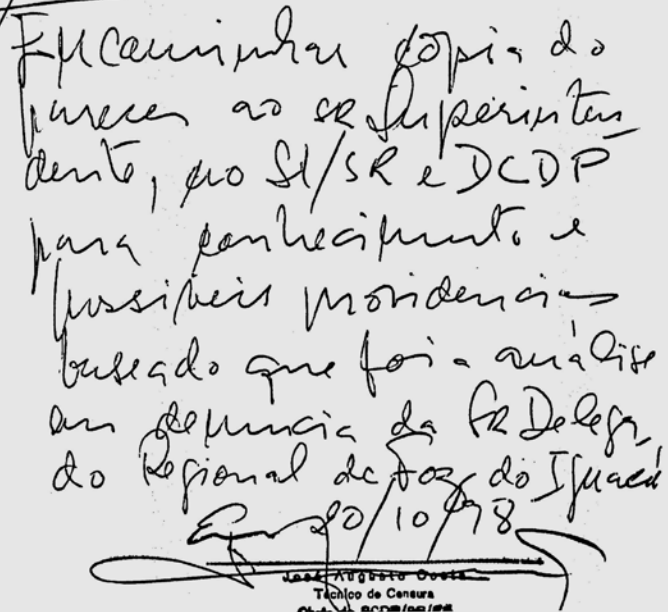 Encaminhar cópia do
parecer ao sr Superinten
dente, ao SI/SR e DCDP
para conhecimento e
possiveis providencias
baseado que foi a análise
em denuncia da Sr Delega
do Regional de Foz do Iguaçú
20/10/78
José Augusto Costa
Técnico de Censura